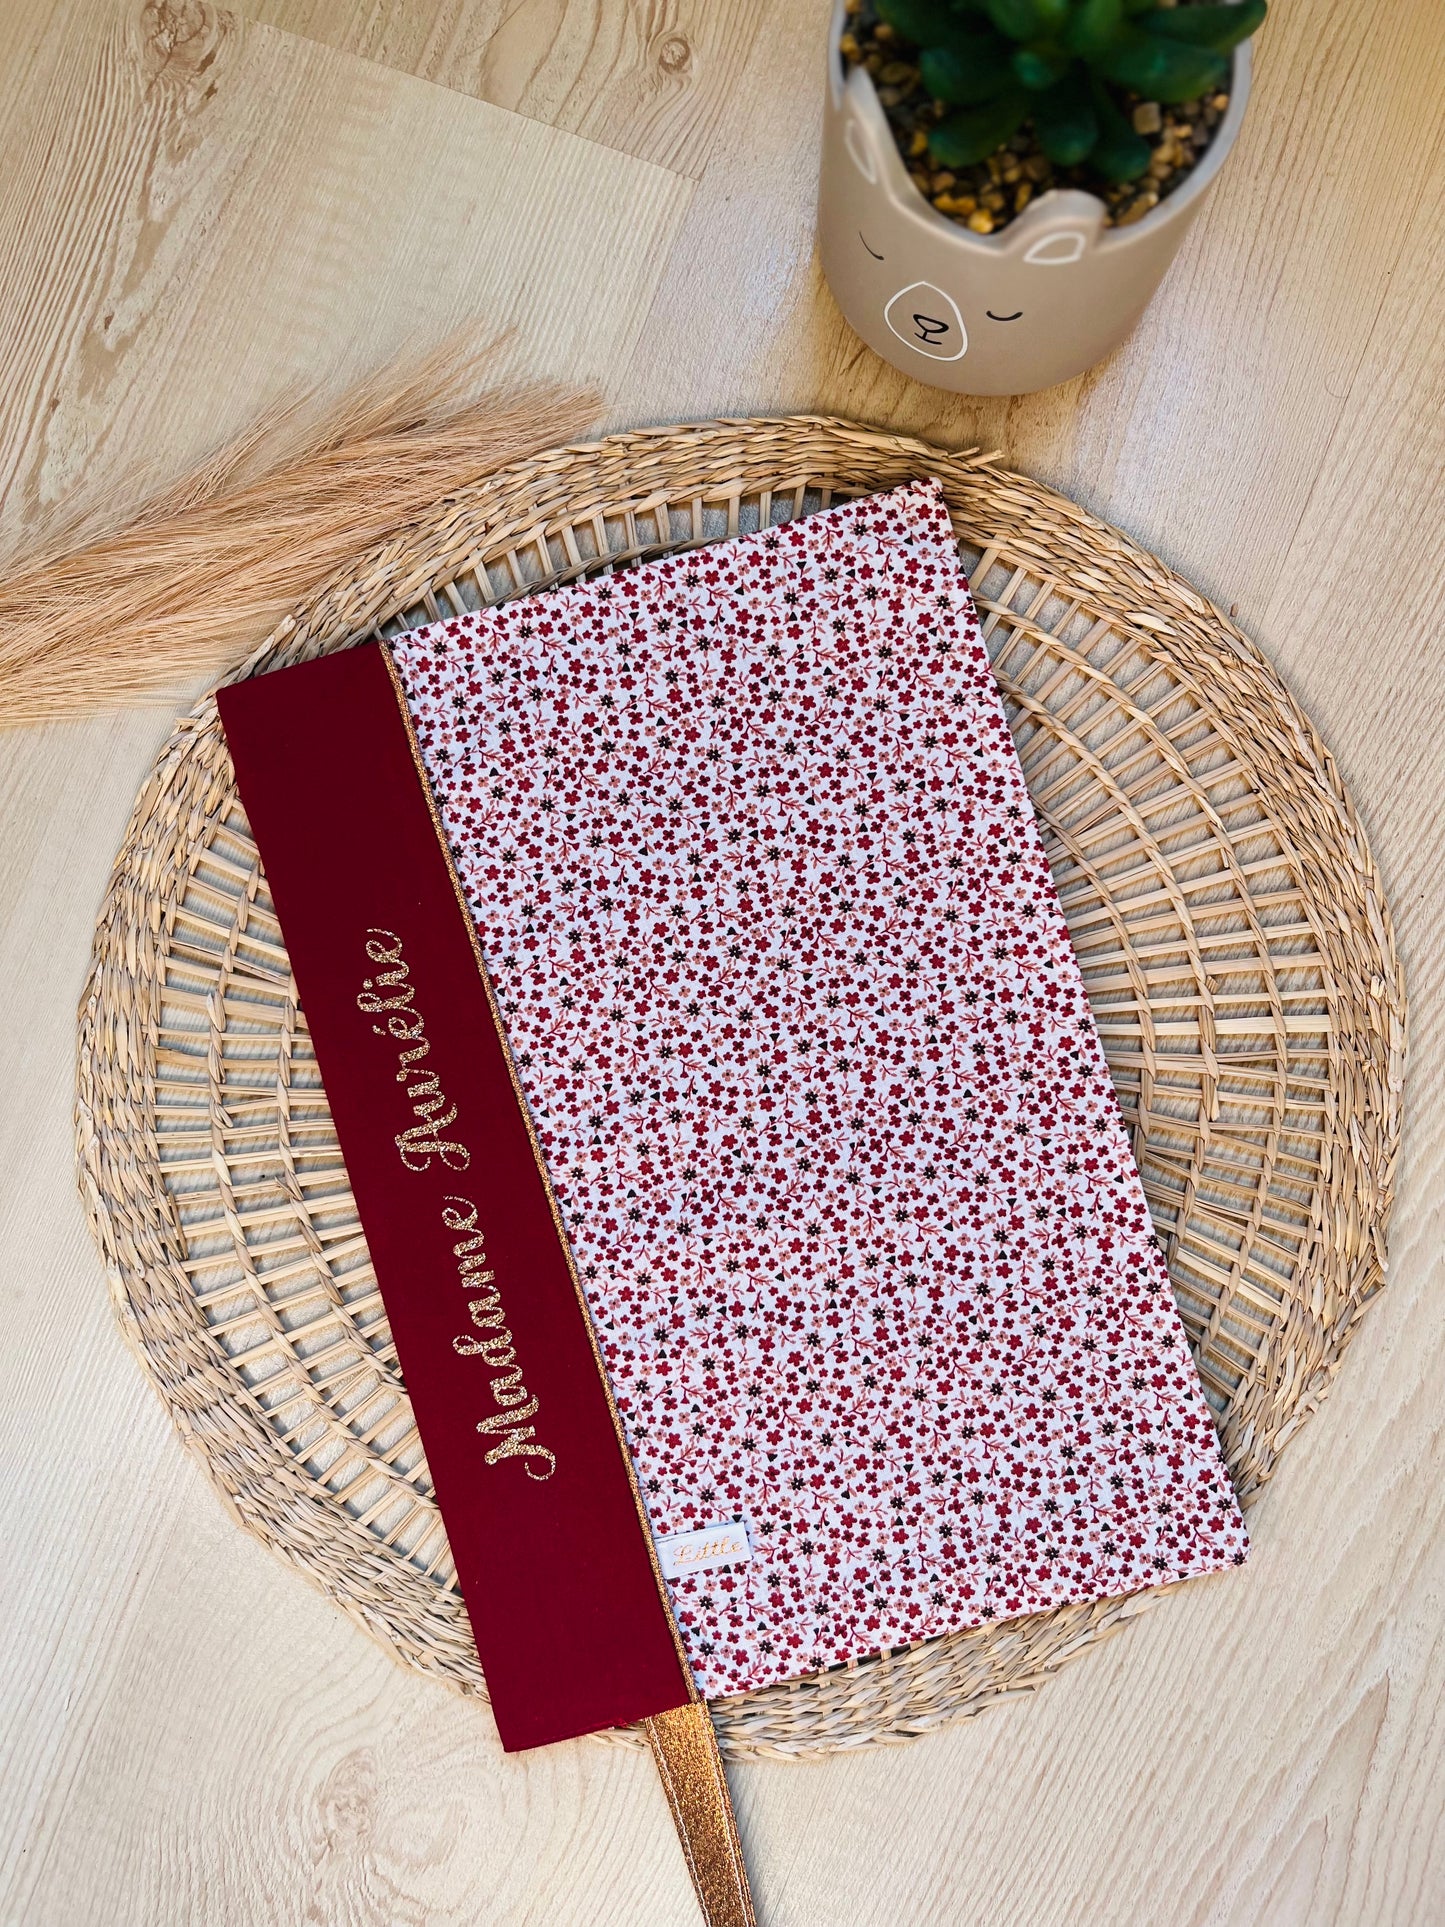 Madame Aurélie
Little